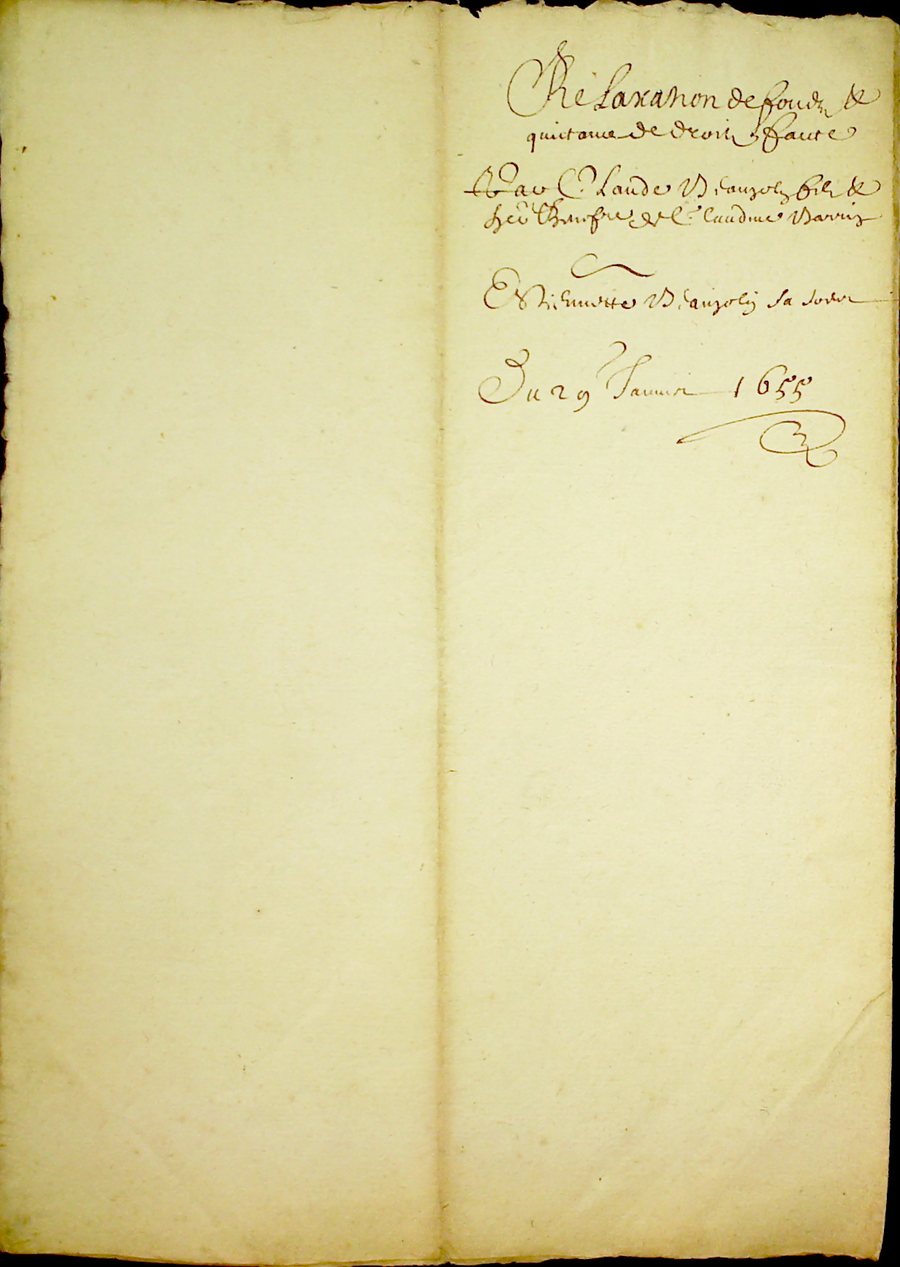 Relaxation de fondz &
quictance de droitz faicte
Par Cl. Laude Beaujoly filz &
her de Claudine
Estiennette Beaujolin sa soeur
Du 29 Janvier 1655